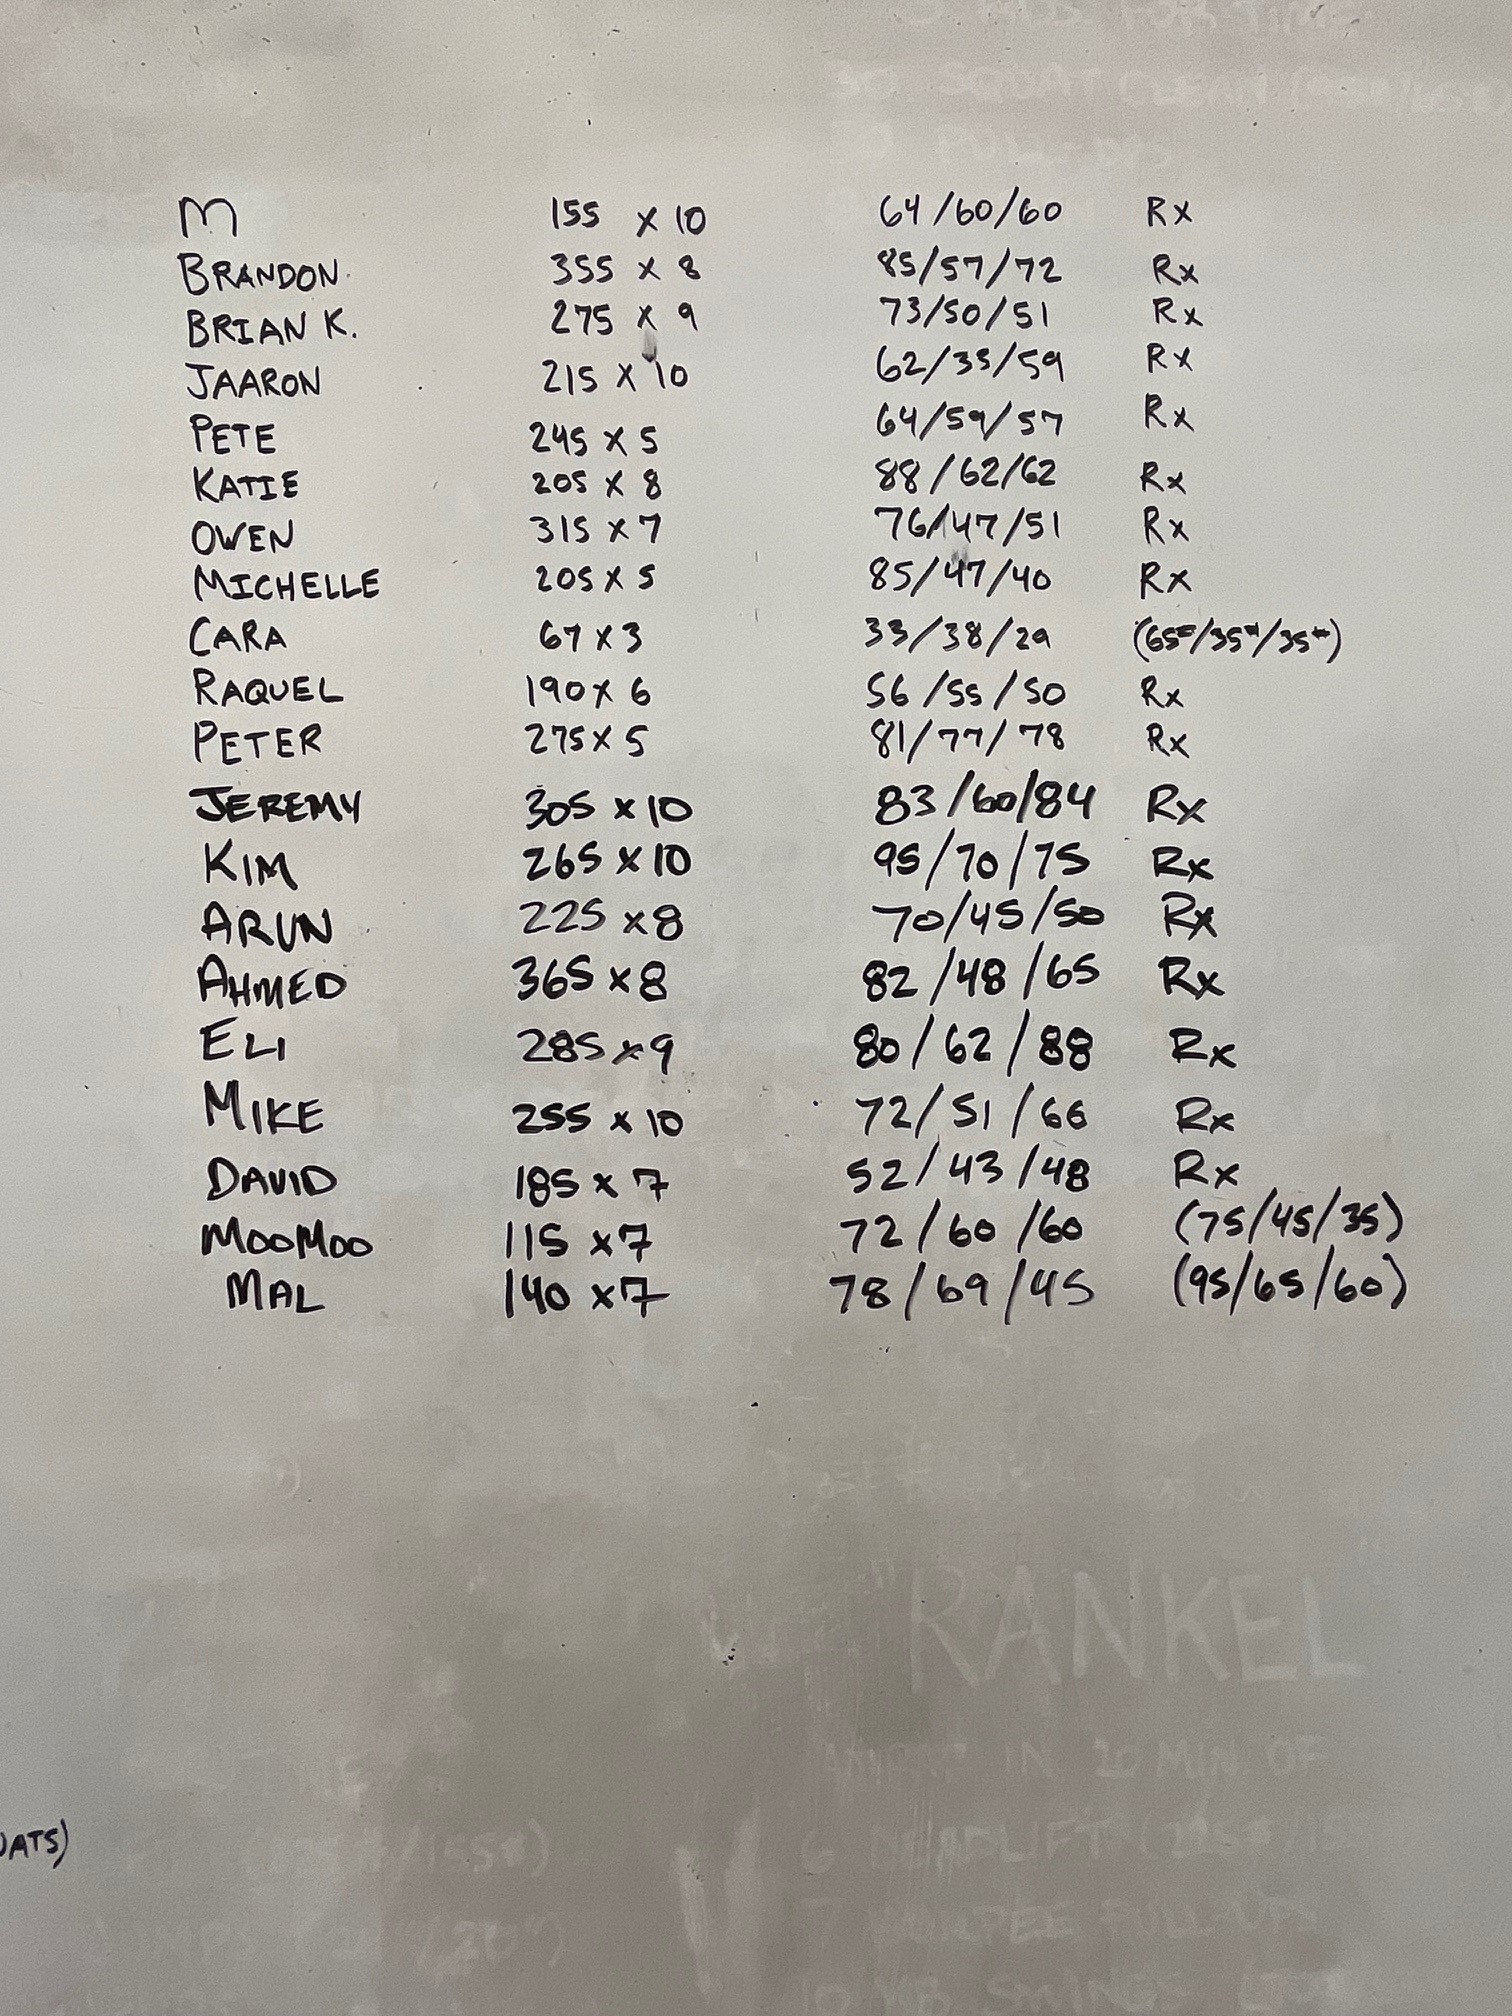 M 155 x 10 64/60/60 Rx
BRANDON 355 x 8 85/57/72 Rx
BRIAN K. 275 x 9 73/50/51 Rx
JAARON 215 x 10 62/35/59 Rx
PETE 245 x 5 64/59/57 Rx
KATIE 205 x 8 88/62/62 Rx
OWEN 315 x 7 76/47/51 Rx
MICHELLE 205 x 5 85/47/40 Rx
CARA 67 x 3 33/38/29 (65#/35#/35#)
RAQUEL 190 x 6 56/55/50 Rx
PETER 275 x 5 81/77/78 Rx
JEREMY 305 x 10 83/60/84 Rx
KIM 265 x 10 95/70/75 Rx
ARUN 225 x 8 70/45/50 Rx
AHMED 365 x 8 82/48/65 Rx
ELI 285 x 9 80/62/88 Rx
MIKE 255 x 10 72/51/66 Rx
DAVID 185 x 7 52/43/48 Rx
MOOMOO 115 x 7 72/60/60 (75/45/35)
MAL 140 x 7 78/69/45 (95/65/60)
"RANKEL"
IN 20 MIN OF
UATS)
6 DEADLIFT
7 BURPEE PULL-UPS
10 KB SWINGS